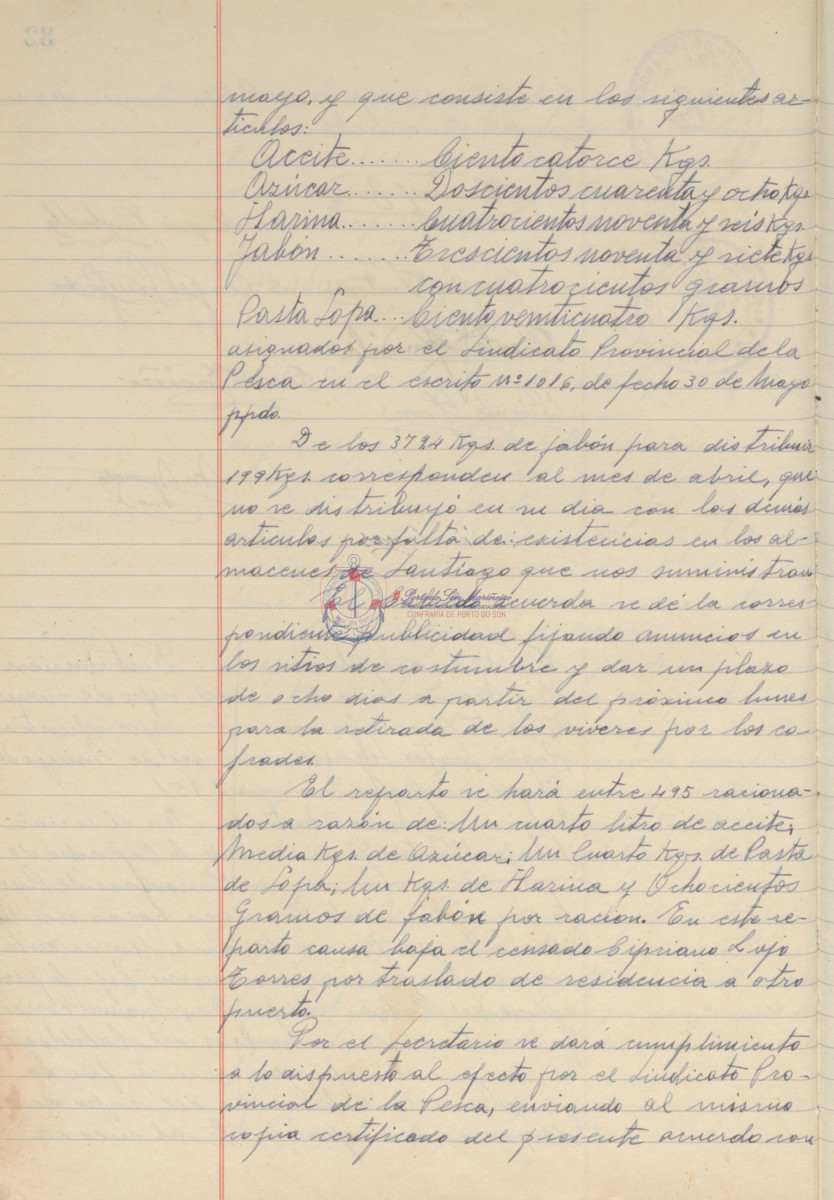 mayo, y que consiste en los siguientes ar-
ticulos:
Aceite....... Ciento catorce Kgs.
Azúcar....... Doscientos cuarenta y ocho Kgs
Harina....... Cuatrocientos noventa y seis Kgs.
Jabón........ Trescientos noventa y siete Kgs
con cuatrocientos gramos
Pasta Sopa... Ciento veinticuatro Kgs.
asignados por el Sindicato Provincial de la
Pesca en el escrito nº 1016, de fecho 30 de Mayo
ppdo.
De los 379,4 Kgs. de jabón para distribuir
199 Kgs. corresponden al mes de abril, que
no se distribuyó en su dia con los demás
articulos por falta de existencias en los al-
macenes de Santiago que nos suministran
El Cabildo acuerda se dé la corres-
CONFRARIA DE PORTO DO SON
pondiente publicidad fijando anuncios en
los sitios de costumbre y dar un plazo
de ocho dias a partir del próximo lunes
para la retirada de los viveres por los co-
frades.
El reparto se hará entre 495 raciona-
dos a razón de: Un cuarto litro de aceite;
Media Kgs. de Azúcar; Un Cuarto Kgs. de Pasta
de Sopa; Un Kgs. de Harina y Ochocientos
Gramos de jabón por racion. En este re-
parto causa baja el censado Cipriano Lojo
Torres por traslado de residencia a otro
puerto.
Por el Secretario se dará cumplimiento
a lo dispuesto al efecto por el Sindicato Pro-
vincial de la Pesca, enviando al mismo
copia certificado del presente acuerdo con